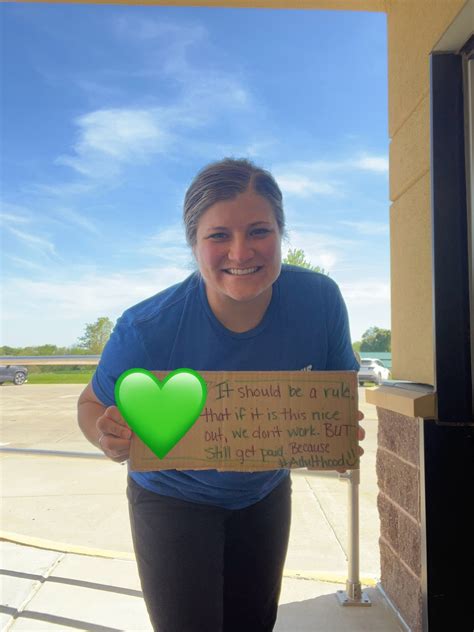 It should be a rule,
that if it is this nice
out, we don't work. BUT
still get paid. Because
#Adulthood